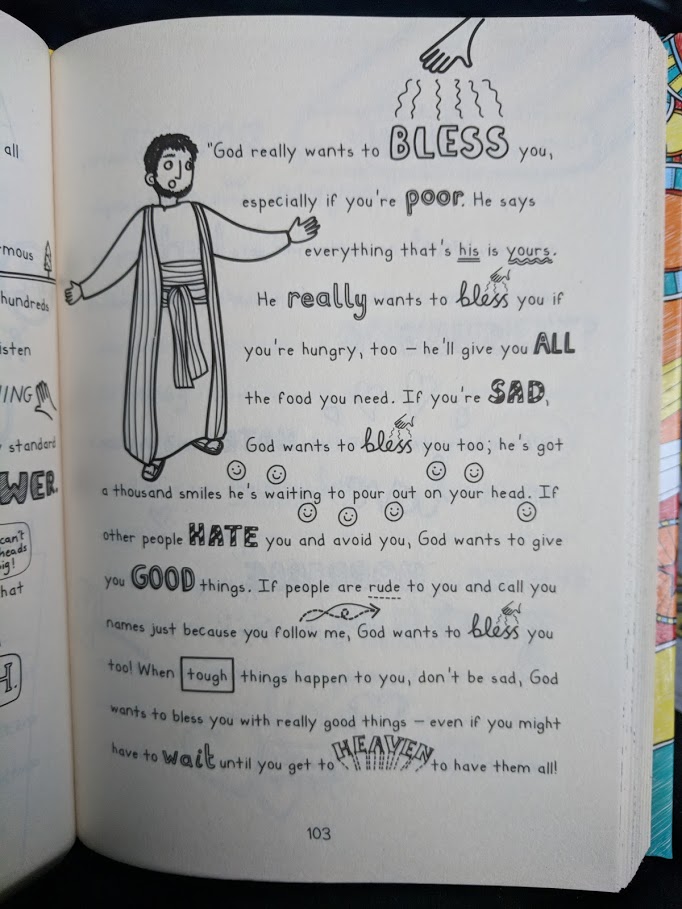 all
rmous
hundreds
isten
ING
standard
WER.
can't
heads
ig!
hat
H.
"God really wants to BLESS you,
especially if you're poor. He says
everything that's his is yours.
He really wants to bless you if
you're hungry, too – he'll give you ALL
the food you need. If you're SAD,
God wants to bless you too; he's got
a thousand smiles he's waiting to pour out on your head. If
other people HATE you and avoid you, God wants to give
you GOOD things. If people are rude to you and call you
names just because you follow me, God wants to bless you
too! When tough things happen to you, don't be sad, God
wants to bless you with really good things – even if you might
have to wait until you get to HEAVEN to have them all!
103